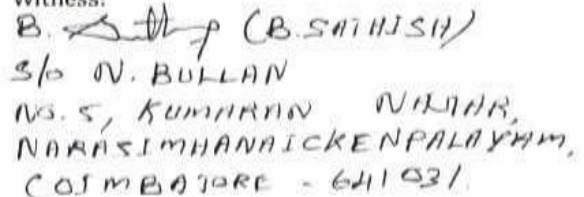 Witness:
B. (B. SATHISH)
S/o N. BULLAN
NO. 5, KUMARAN NAGAR,
NARASIMHANAICKENPALAYAM,
COIMBATORE - 641031.